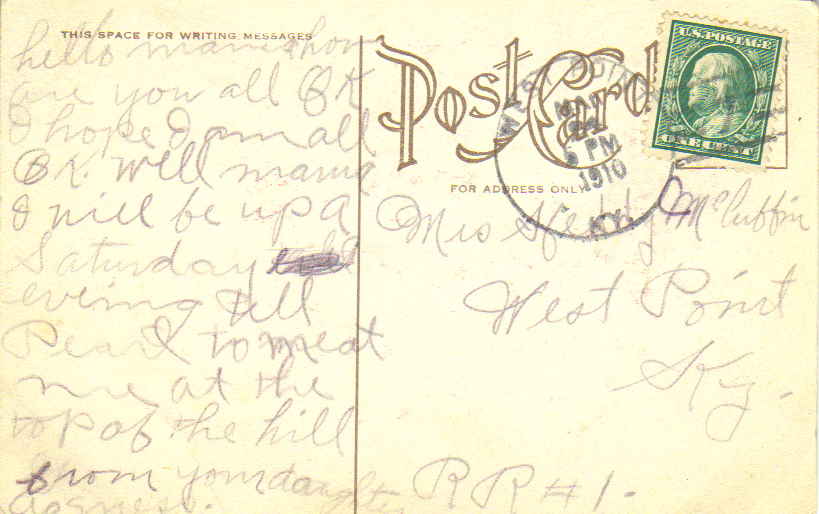 THIS SPACE FOR WRITING MESSAGES
hello mama how
are you all OK
I hope I am all
OK. Well mama
I will be up A
Saturday
evining tell
Pearl to meat
me at the
top of the hill
from your daughter
Post Card
FOR ADDRESS ONLY
WEST POINT
MAY
6 PM
1910
KY.
U.S. POSTAGE
ONE CENT
Mrs Henry McCuffin
West Point
Ky.
RR #1.